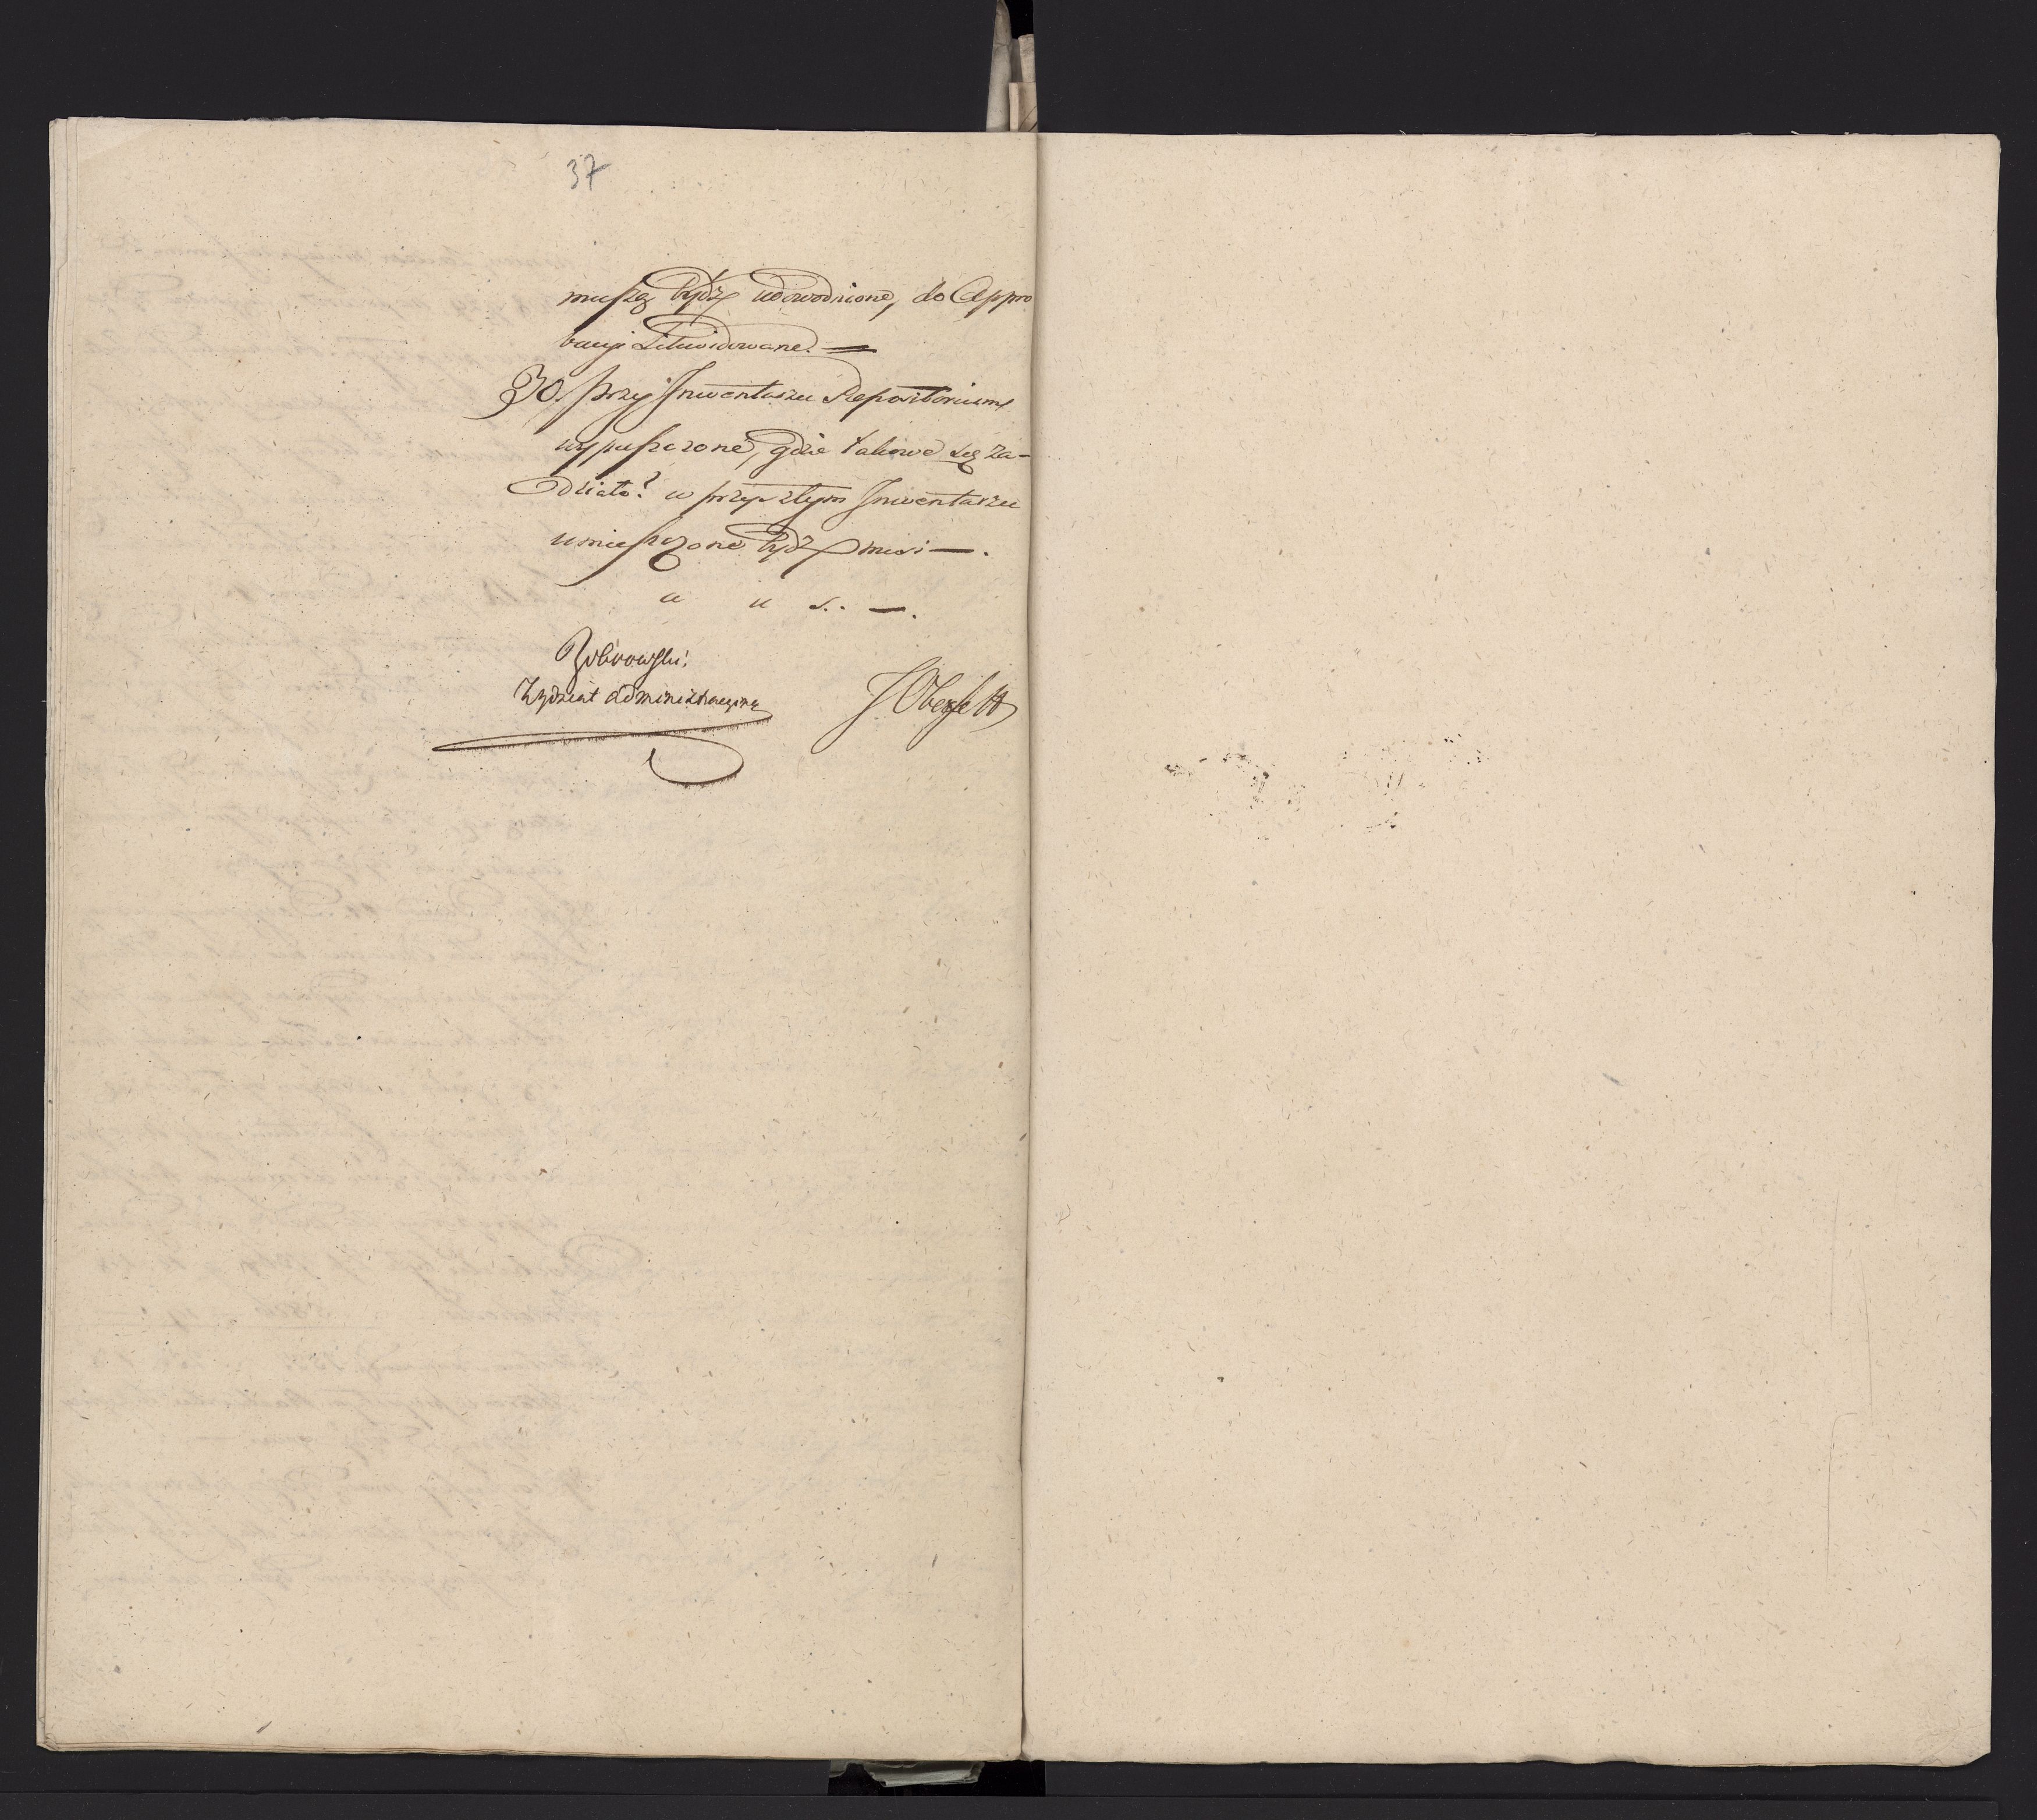 37
muszą bydź udowodnione, do Appro
bacyi Litwidowane. =
30. przy Inwentarzu Repositorium
wypuszczone, gdzie takowe się za-
działo? w przyszłym Inwentarzu
umieszczone bydź musi —.
a u s.. —.
Bobrowski
Wydział Administracyiny